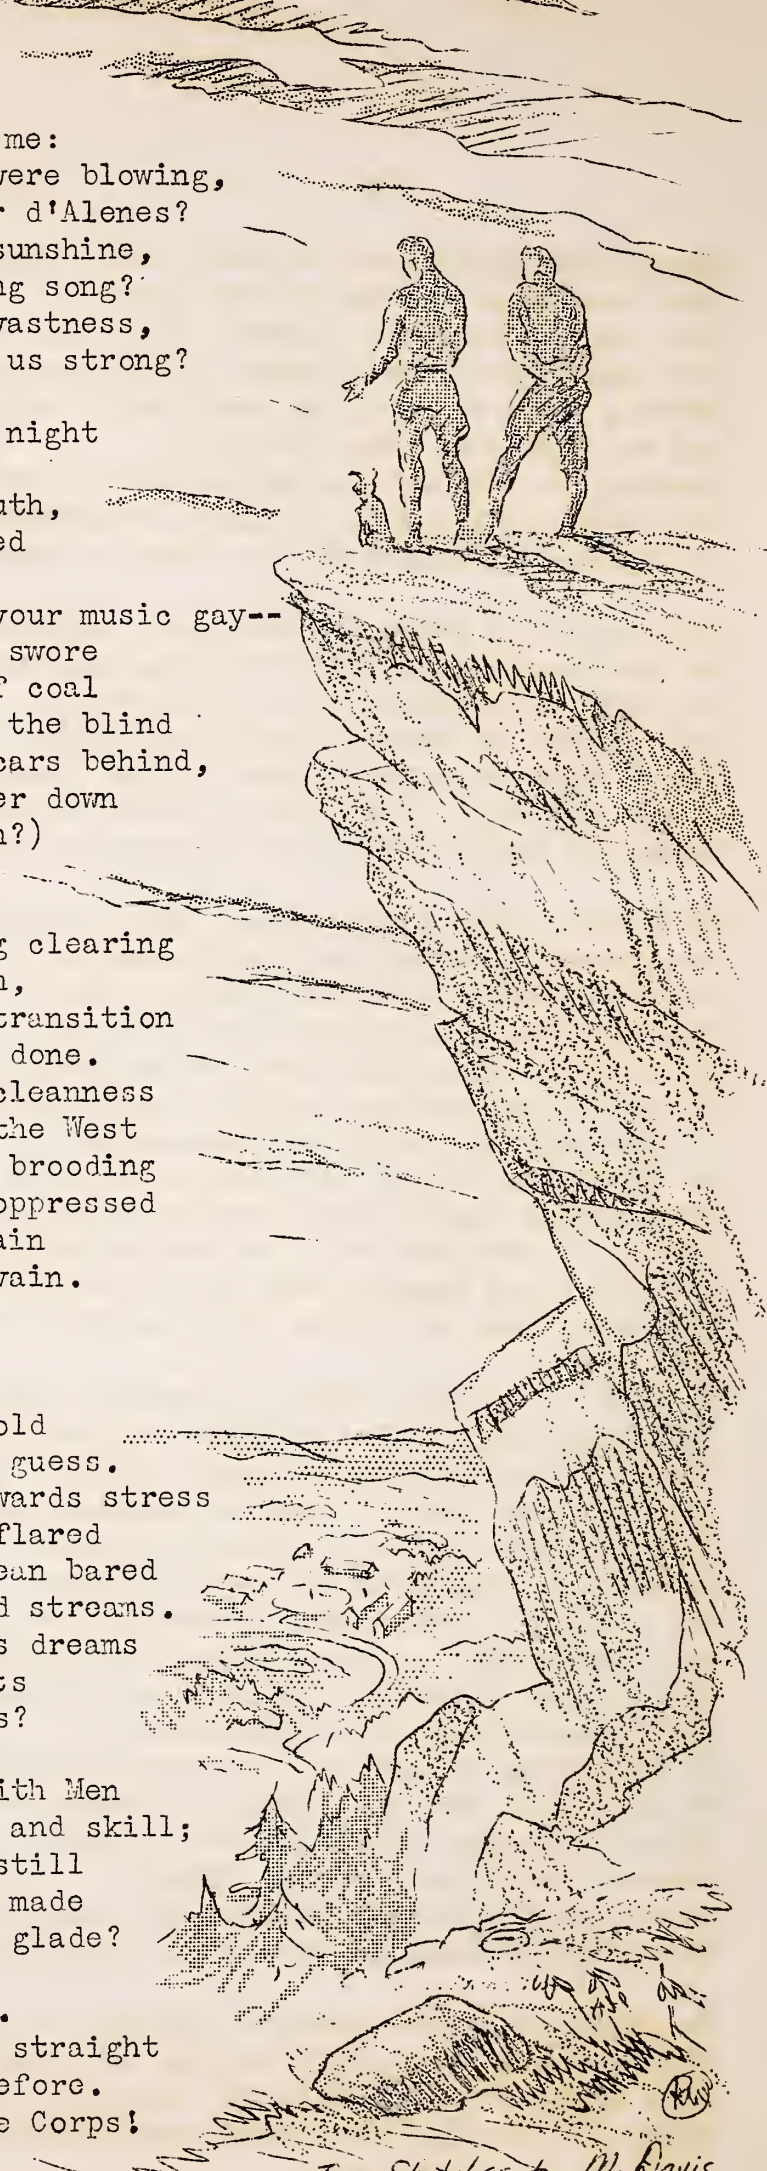 me:
were blowing,
r d'Alenes?
sunshine,
ng song?
vastness,
us strong?
night
uth,
ed
your music gay--
swore
f coal
the blind
cars behind,
er down
n?)
g clearing
n,
transition
done.
cleanness
the West
brooding
oppressed
ain
vain.
old
guess.
wards stress
flared
ean bared
d streams.
s dreams
ts
s?
ith Men
and skill;
still
made
glade?
.
straight
efore.
e Corps!
M. Davis